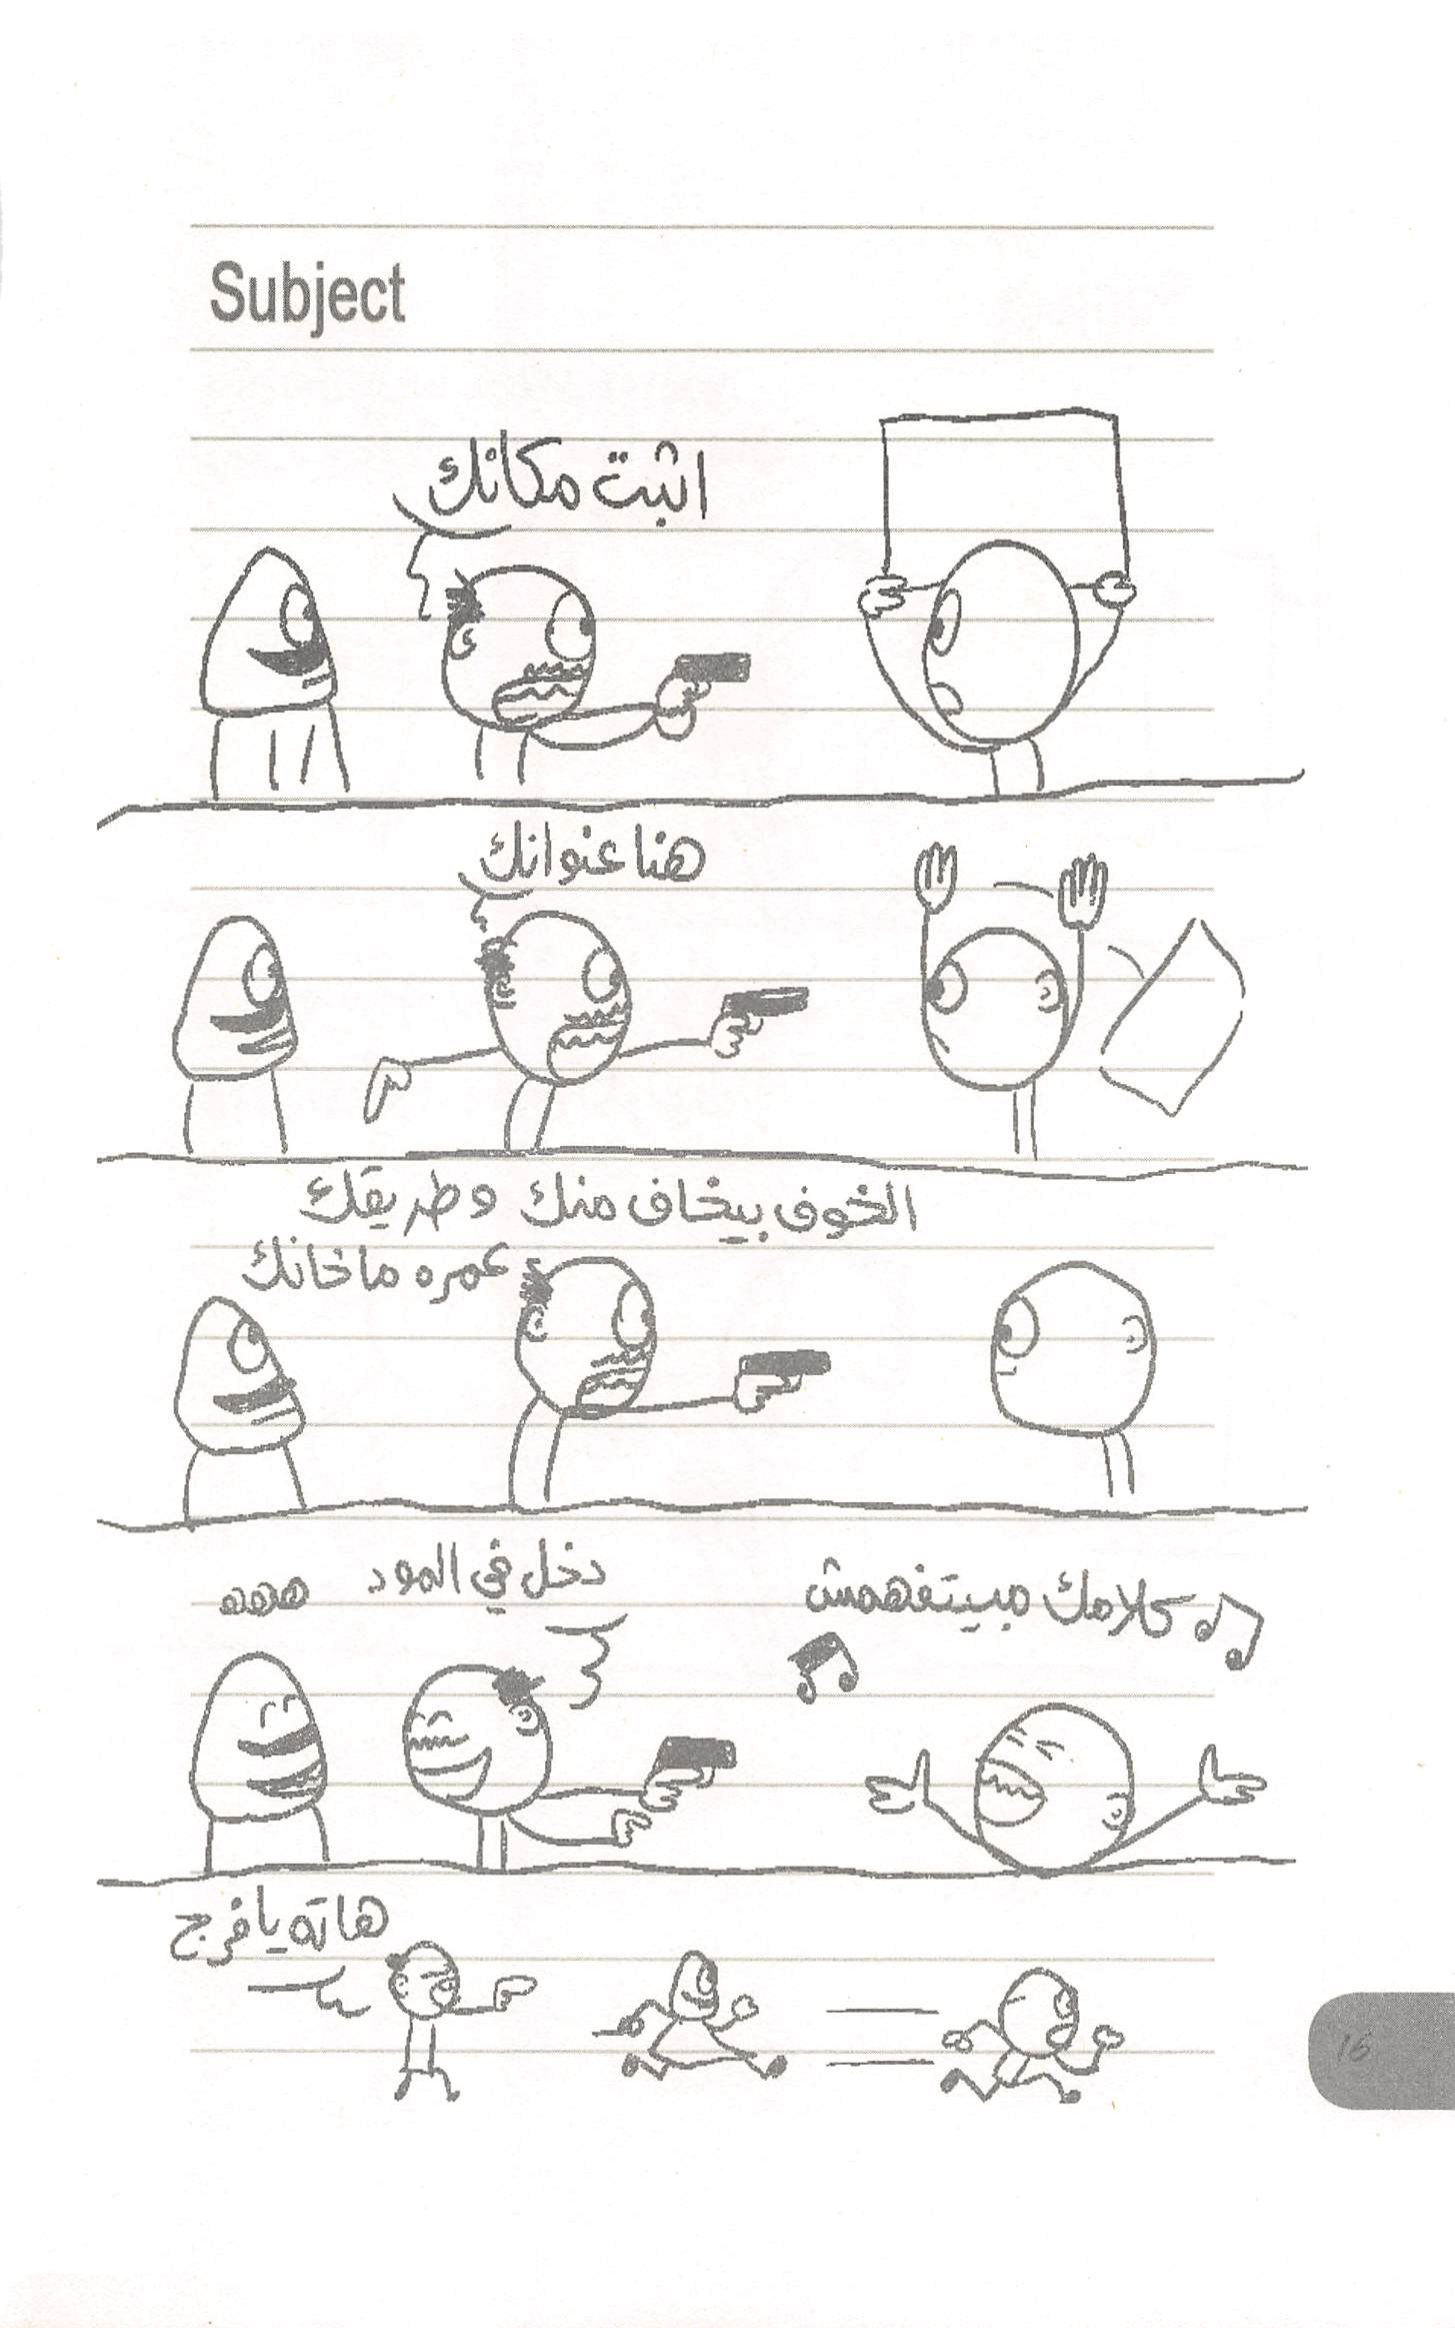 Subject
اثبت مكانك
هنا عنوانك
الخوف بيخاف منك وطريقك
عمره ماخانك
كلامك مبيتفهمش
دخل في المود
ههههه
هاته يا فرج
16